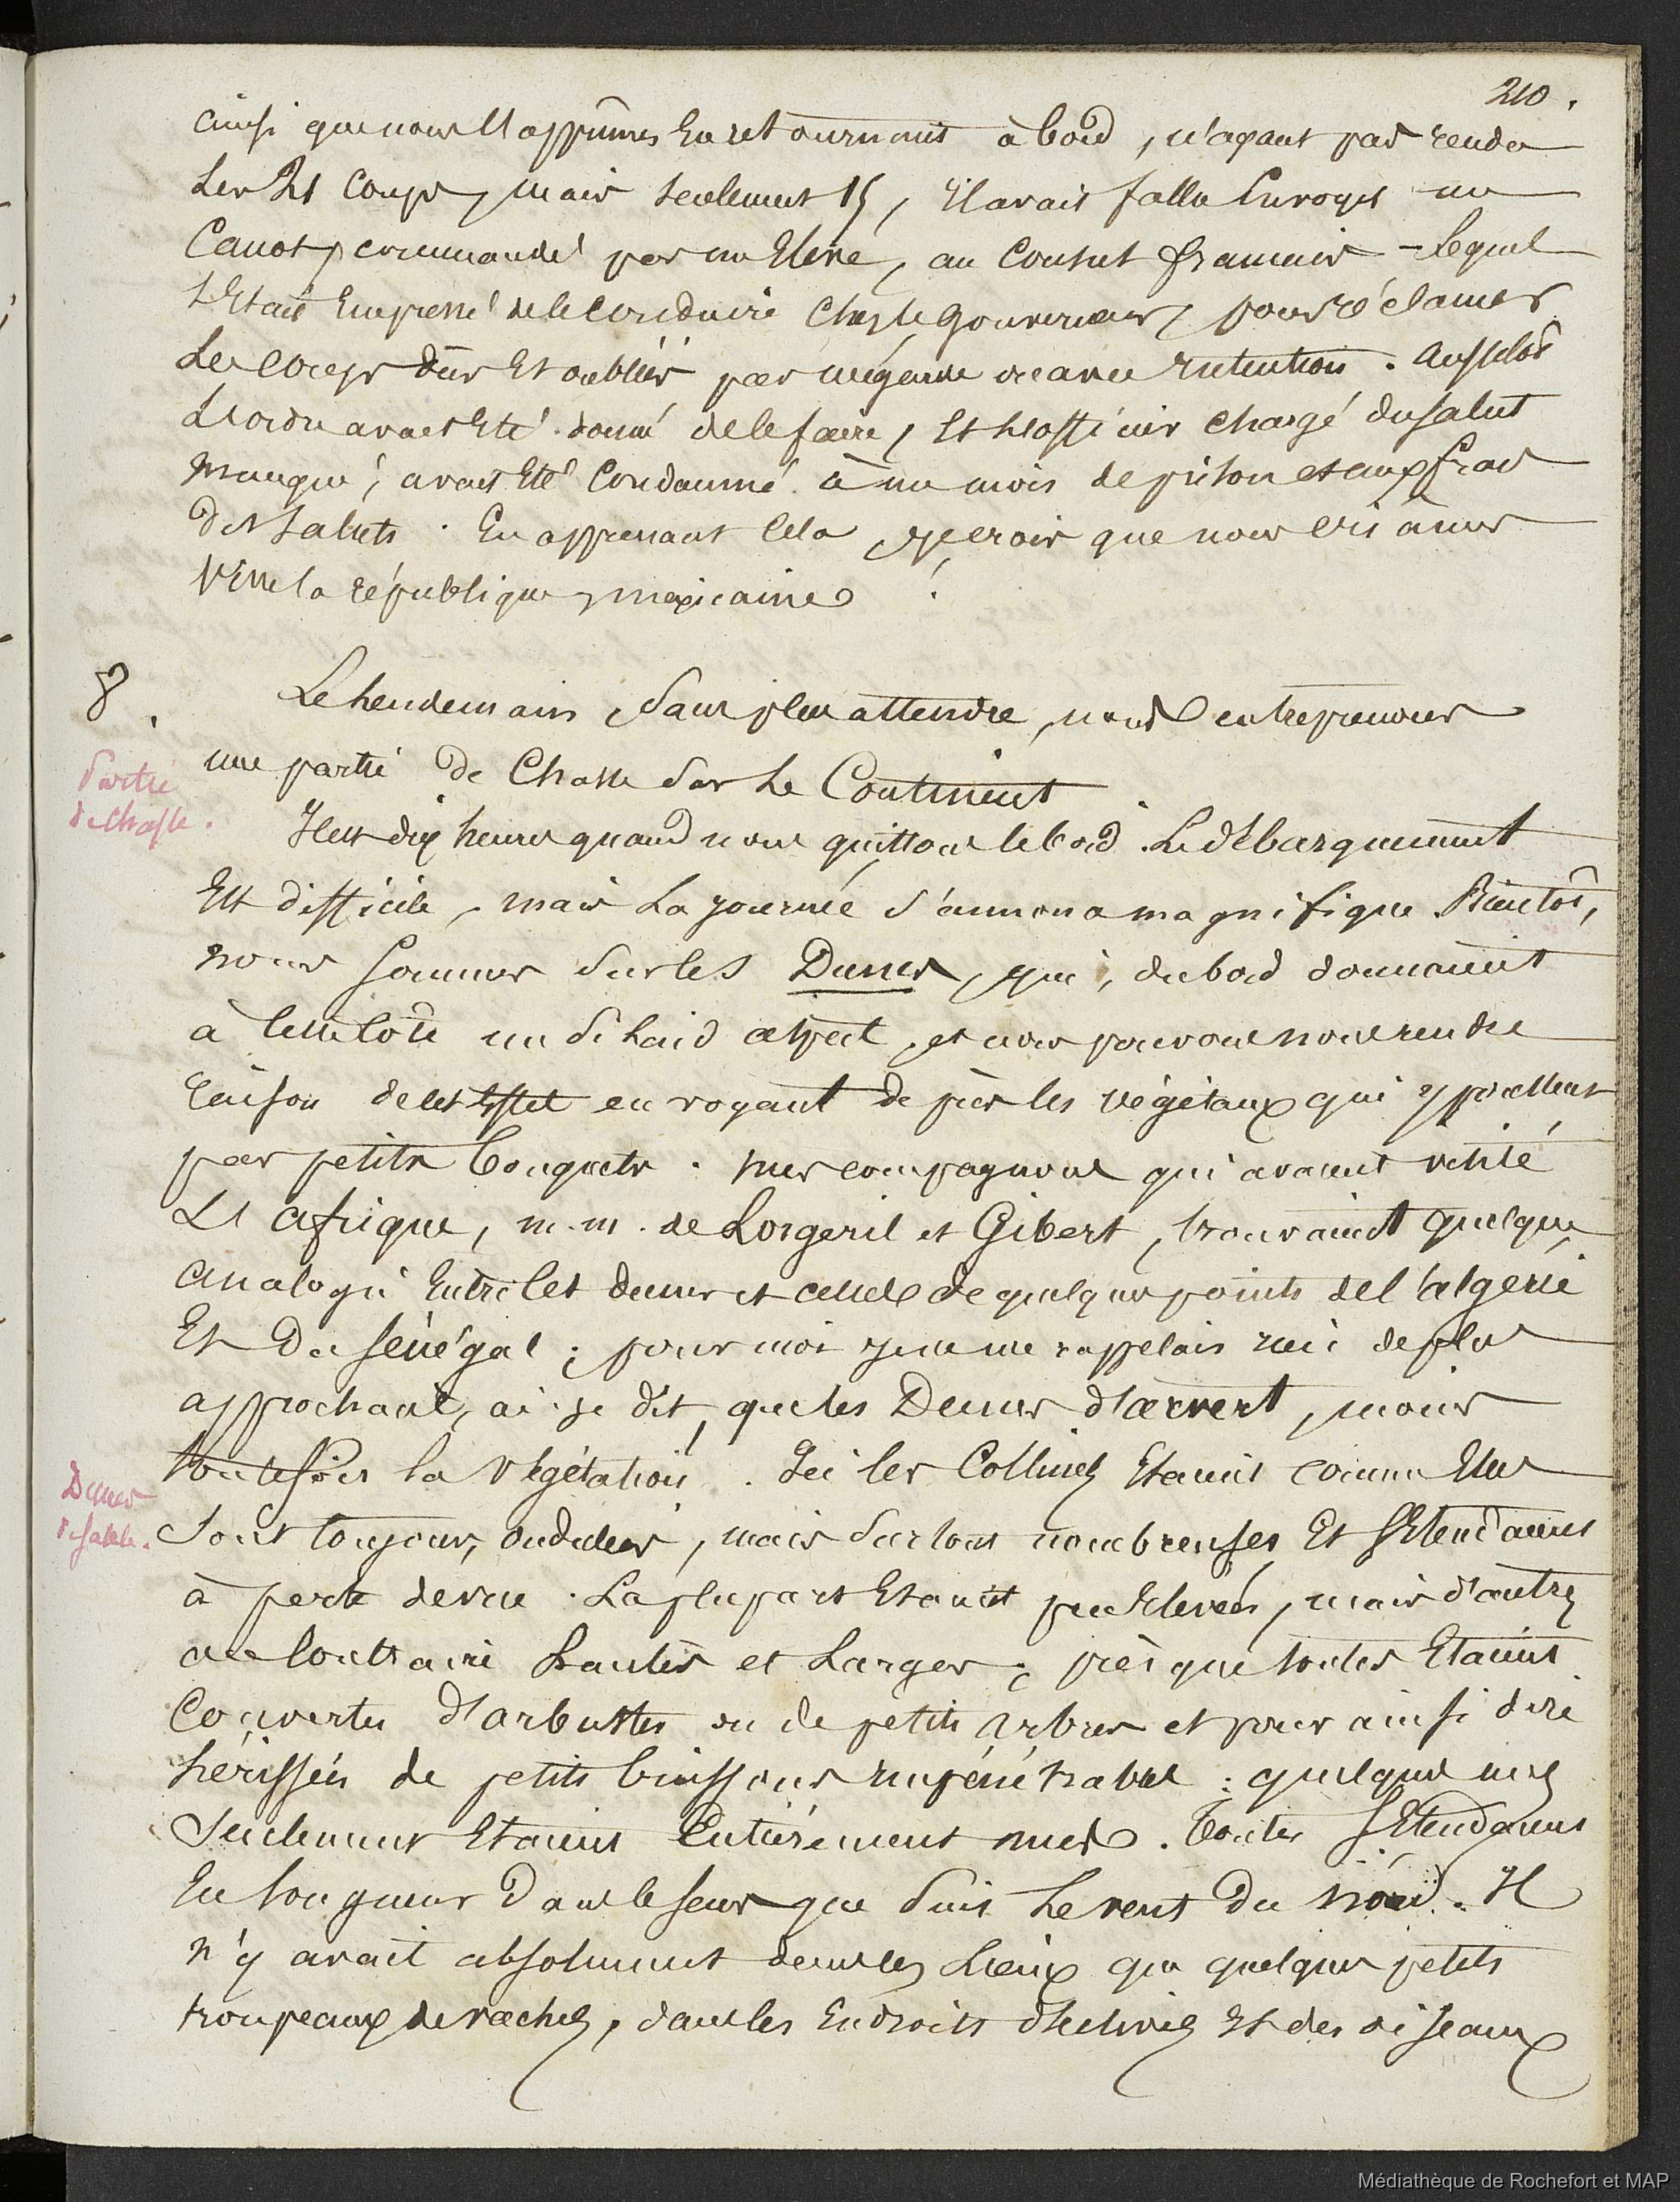 210.
ainsi que nous l'apprimes en retournant à bord, n'ayant pas rendu
les 21 coups, mais seulement 15, il avait fallu envoyer un
canot, commandé par un élève, au consul français - lequel
s'était empressé de le conduire chez le gouverneur, pour réclamer
les coups dûs et oubliés par mégarde ou avec intention. Aussitôt
l'ordre avait été donné de le faire, et l'officier chargé du salut
manqué, avait été condamné à un mois de prison et aux frais
des saluts. En apprenant cela, je crois que nous criâmes
vive la république mexicaine !
8.
Le lendemain, sans plus attendre, nous entreprenons
une partie de chasse sur le Continent.
Partie
de chasse.
Il est dix heures quand nous quittons le bord. Le débarquement
est difficile, mais la journée s'annonca magnifique. Bientôt,
nous sommes sur les Dunes, qui, du bord donnaient
à cette côte un si laid aspect, et nous pouvons nous rendre
raison de cet effet en voyant de près les végétaux qui y poussent
par petits bouquets. Mes compagnons qui avaient visité
l'afrique, m.m. de Lorgeril et Gibert, trouvaient quelque
analogie entre les dunes et celles de quelques points de l'algérie
et du Sénégal ; pour moi je ne me rappelais rien de plus
approchant, ai-je dit, que les Dunes d'arvert, moins
toutefois la végétation. Ici les collines étaient comme elles
Dunes
de sable.
sont toujours, ondulées, mais surtout nombreuses et s'étendaient
à perte de vue. La plupart étaient peu élevées, mais d'autres
au contraire hautes et larges ; presque toutes étaient
couvertes d'arbustes ou de petits arbres et pour ainsi dire
hérissées de petits buissons impénétrables : quelques unes
seulement étaient entièrement nues. Toutes s'étendaient
en longueur dans le sens que suit le vent du nord. Il
n'y avait absolument dans les lieux que quelques petits
troupeaux de vaches, dans les endroits et des oiseaux
Médiathèque de Rochefort et MAP